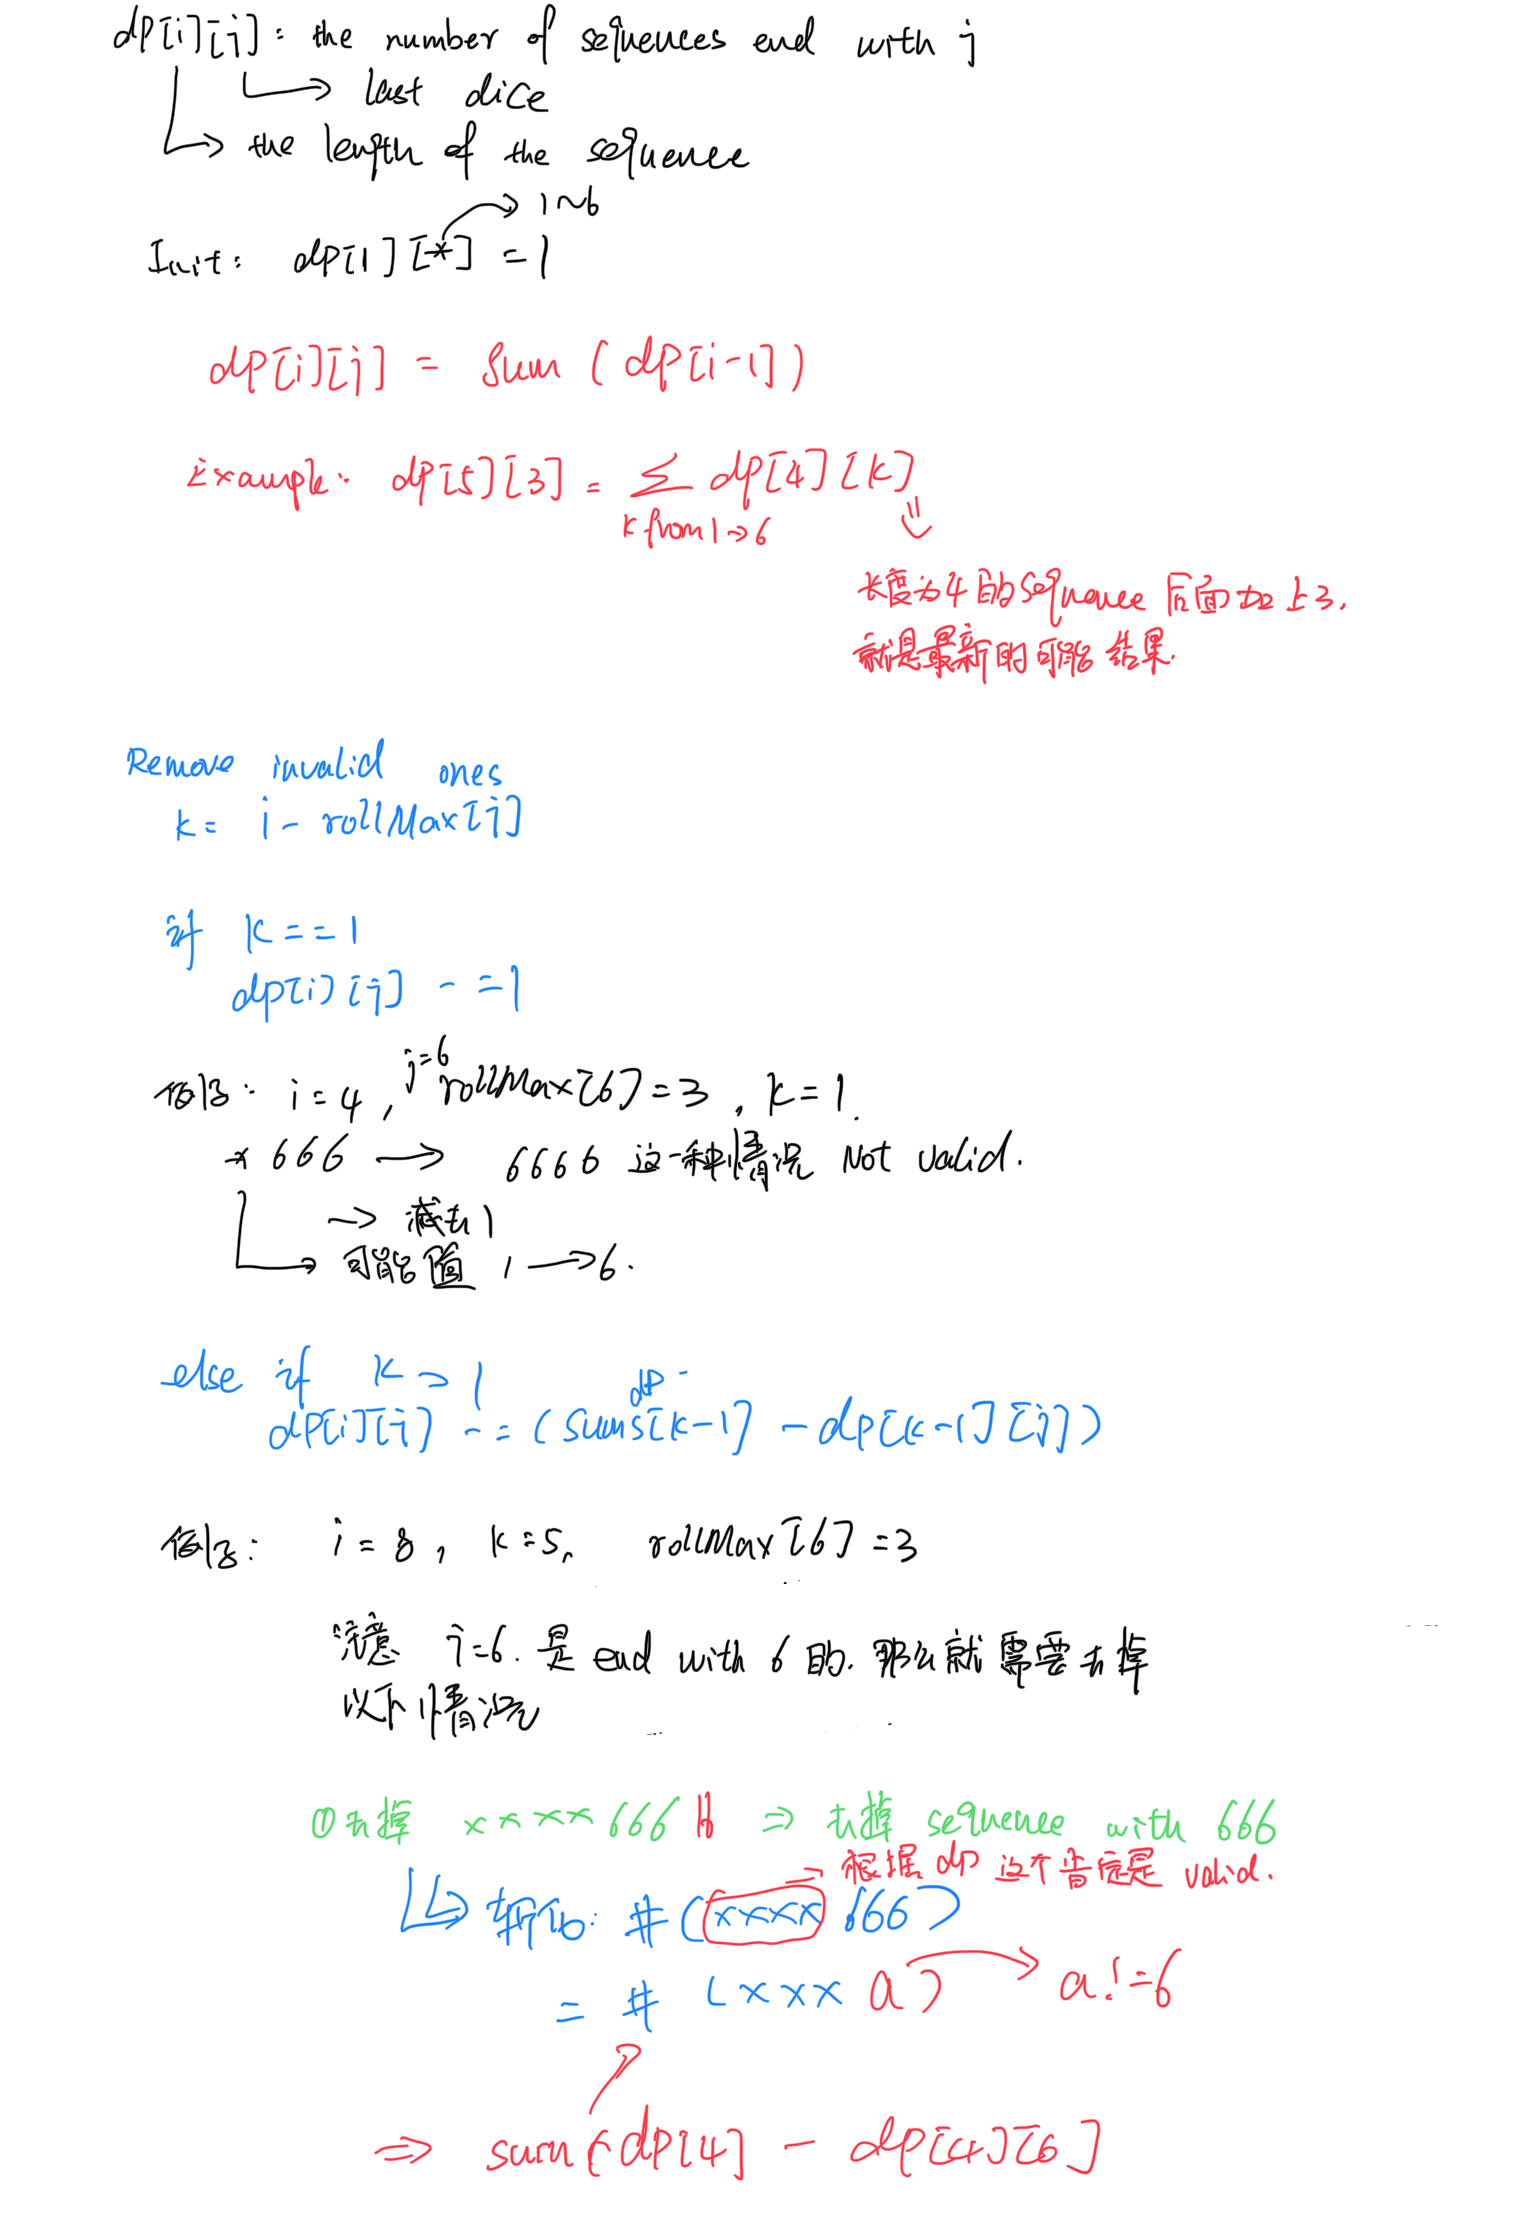 dp[i][j]: the number of sequences end with j
→ last dice
→ the length of the sequence
→ 1~6
Init: dp[1][*] = 1
dp[i][j] = sum(dp[i-1])
Example: dp[5][3] = ∑ dp[4][k]
k from 1→6
长度为4的sequence后面加上3.
就是最新的可能结果.
Remove invalid ones
k = i - rollMax[j]
if k == 1
dp[i][j] -= 1
例子: i=4, j=6 rollMax[6]=3, k=1.
*666 → 6666 这一种情况 Not valid.
→ 减去1
→ 可能值 1→6.
else if k > 1
dp
dp[i][j] -= (sums[k-1] - dp[k-1][j])
例子: i=8, k=5, rollMax[6]=3
注意 j=6. 是end with 6的. 那么就需要去掉
以下情况
①去掉 xxxx666 6 ⇒ 去掉 sequence with 666
→ 根据dp 这个肯定是 valid.
↳ 转化: #(xxxx 666)
= # (xxx a) → a!=6
⇒ sum(dp[4] - dp[4][6]